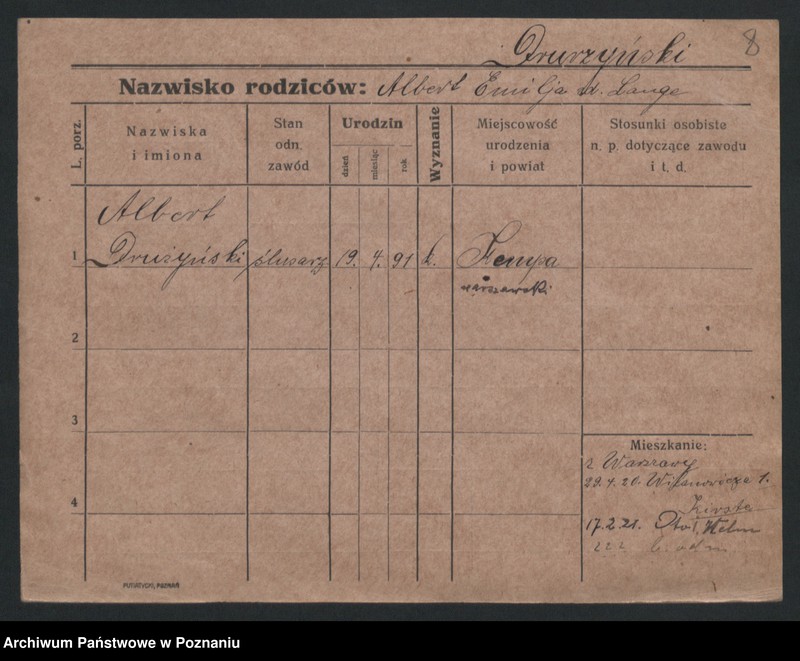 8
Drurzyński
Nazwisko rodziców: Albert Emilja d. Lange
L. porz.
Nazwiska
i imiona
Stan
odn.
zawód
Urodzin
dzień
miesiąc
rok
Wyznanie
Miejscowość
urodzenia
i powiat
Stosunki osobiste
n. p. dotyczące zawodu
i t. d.
Albert
1 Drużyński ślusarz 19. 4. 91 k. Kempa
warszawski
2
3
4
Mieszkanie:
z Warszawy
29.4.20. 1.
17.2.21.
PUTIATYCKI, POZNAŃ
Archiwum Państwowe w Poznaniu